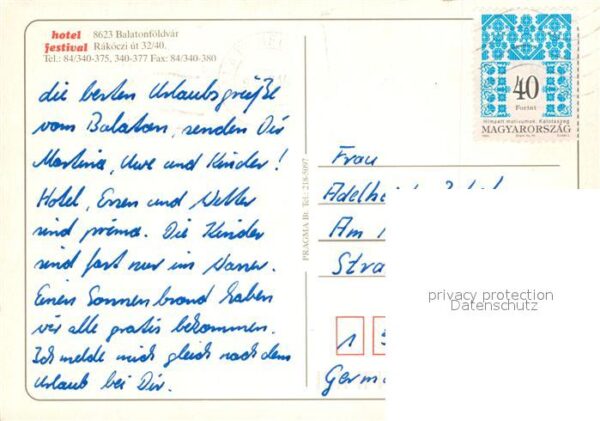 hotel 8623 Balatonföldvár
festival Rákóczi út 32/40.
Tel.: 84/340-375, 340-377 Fax: 84/340-380
die besten Urlaubsgrüße
vom Balaton, senden Dir
Martina, Uwe und Kinder!
Hotel, Essen und Wetter
sind prima. Die Kinder
sind fast nur im Wasser.
Einen Sonnenbrand haben
wir alle gratis bekommen.
Ich melde mich gleich nach dem
Urlaub bei Dir.
PRAGMA Bt. Tel.: 218-5097
40
Forint
MAGYARORSZÁG
Frau
Am
Stra
1
Germ
privacy protection
Datenschutz